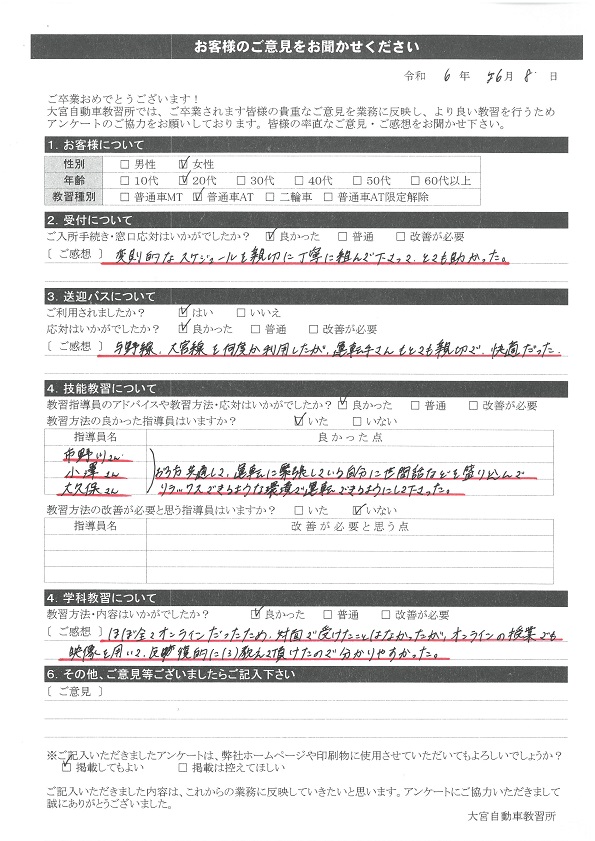 お客様のご意見をお聞かせください
令和 6 年 6月 8 日
ご卒業おめでとうございます！
大宮自動車教習所では、ご卒業されます皆様の貴重なご意見を業務に反映し、より良い教習を行うため
アンケートのご協力をお願いしております。皆様の率直なご意見・ご感想をお聞かせ下さい。
1. お客様について
性別 □ 男性 ☑ 女性
年齢 □ 10代 ☑ 20代 □ 30代 □ 40代 □ 50代 □ 60代以上
教習種別 □ 普通車MT ☑ 普通車AT □ 二輪車 □ 普通車AT限定解除
2. 受付について
ご入所手続き・窓口応対はいかがでしたか？ ☑ 良かった □ 普通 □ 改善が必要
〔 ご感想 〕 変則的なスケジュールを親切に丁寧に組んで下さって、とても助かった。
3. 送迎バスについて
ご利用されましたか？ ☑ はい □ いいえ
応対はいかがでしたか？ ☑ 良かった □ 普通 □ 改善が必要
〔 ご感想 〕 与野線、大宮線を何度か利用したが、運転手さんもとても親切で、快適だった。
4. 技能教習について
教習指導員のアドバイスや教習方法・応対はいかがでしたか？ ☑ 良かった □ 普通 □ 改善が必要
教習方法の良かった指導員はいますか？ ☑ いた □ いない
指導員名 良かった点
市野川さん
小澤さん 方共通して、運転に緊張している自分に世間話などを盛り込んで
大久保さん リラックスできるような環境で運転できるようにして下さった。
教習方法の改善が必要と思う指導員はいますか？ □ いた ☑ いない
指導員名 改善が必要と思う点
4. 学科教習について
教習方法・内容はいかがでしたか？ ☑ 良かった □ 普通 □ 改善が必要
〔 ご感想 〕 ほぼ全てオンラインだったため、対面で受けたことはなかったが、オンラインの授業でも
映像を用いて、反復的に教えて頂けたので分かりやすかった。
6. その他、ご意見等ございましたらご記入下さい
〔 ご意見 〕
※ご記入いただきましたアンケートは、弊社ホームページや印刷物に使用させていただいてもよろしいでしょうか？
☑ 掲載してもよい □ 掲載は控えてほしい
ご記入いただきました内容は、これからの業務に反映していきたいと思います。アンケートにご協力いただきまして
誠にありがとうございました。
大宮自動車教習所